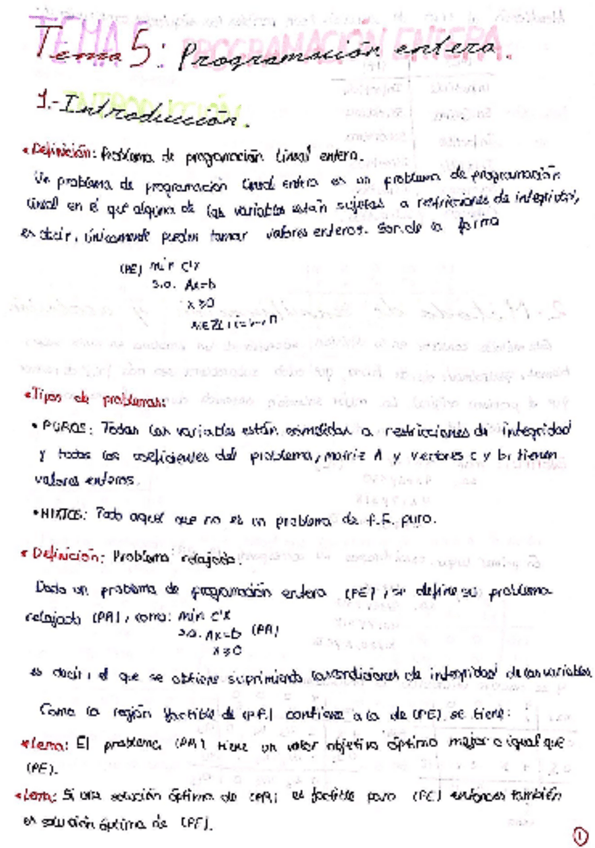 Tema 5: Programación entera.
1.-Introducción.
• Definición: Problema de programación lineal entera.
Un problema de programación lineal entera es un problema de programación
lineal en el que alguna de las variables están sujetas a restricciones de integridad,
es decir, únicamente pueden tomar valores enteros. Son de la forma
(PE) min c'x
s.a. Ax=b
x≥0
• Tipos de problemas:
• PUROS: Todas las variables están sometidas a restricciones de integridad
y todos los coeficientes del problema, matriz A y vectores c y b, tienen
valores enteros.
• MIXTOS: Todo aquel que no es un problema de P.E. puro.
• Definición: Problema relajado.
Dado un problema de programación entera (PE), se define su problema
relajado (PR), como: min c'x
s.a. Ax=b (PR)
x≥0
es decir, el que se obtiene suprimiendo las condiciones de integridad de las variables.
Como la región factible de (PR) contiene a la de (PE) se tiene:
• Lema: El problema (PR) tiene un valor objetivo óptimo mejor o igual que
(PE).
• Lema: Si una solución óptima de (PR) es factible para (PE) entonces también
es solución óptima de (PE).
1